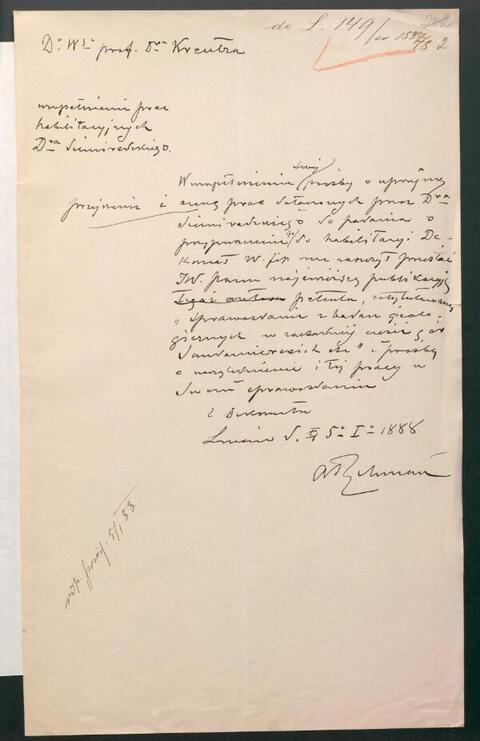 do L. 149/ex 188
78.2
Do Wgo prof. Dra Kreutza
uzupełnienie prac
habilitacyjnych
Dra Siemiradzkiego.
W uzupełnieniu swej prośby o uprzejme
przejrzenie i ocenę prac dołączonych przez Dra
Siemiradzkiego do podania o
przypuszczenie go do habilitacyi De-
kanat W. fil. ma zaszczyt przesłać
JW. Panu najnowszą publikacyę
tegoż autora petenta, zatytułowaną
"Sprawozdanie z badań geolo-
gicznych w zachodniej części gór
Sandomierskich" z prośbą
o uwzględnienie i tej pracy w
Swem sprawozdaniu
Z Dekanatu
Lwów d. 5go I 1888
A Rehman
5/I 88.